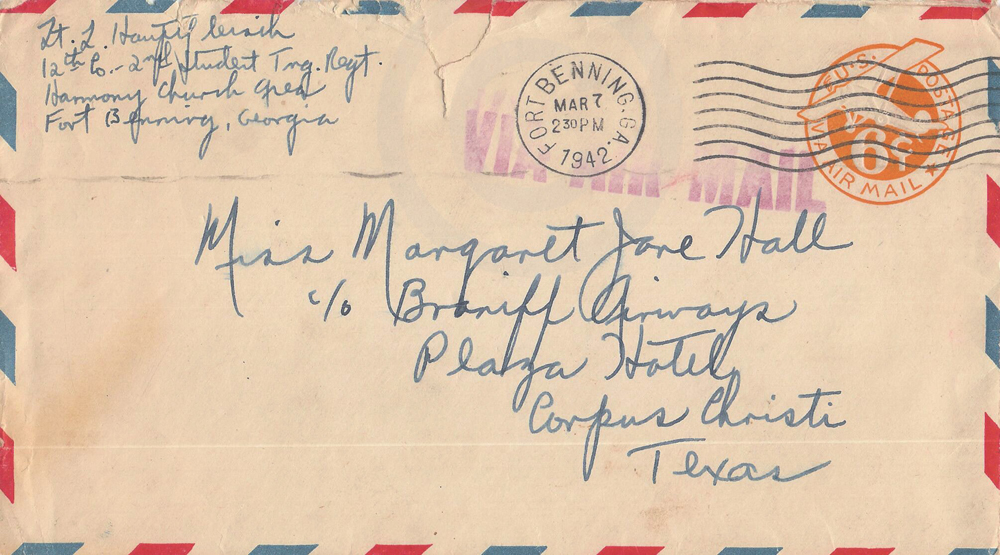 Lt. L.
12th Co. - 2nd Student Tng. Regt.
Harmony Church Area
Fort Benning, Georgia
FORT BENNING, GA.
MAR 7
2 30 PM
1942
U.S. POSTAGE
6¢
VIA AIR MAIL
VIA AIR MAIL
Miss Margaret Jane Hall
c/o Braniff Airways
Plaza Hotel
Corpus Christi
Texas